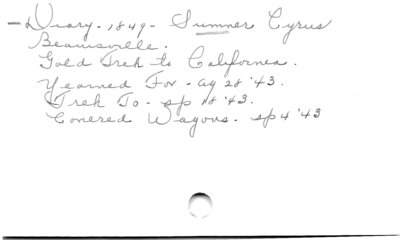 - Diary. 1849 - Sumner Cyrus
Beamsville.
Gold Trek to California.
Yearned For - ag 28 '43.
Trek To - sp 18 '43.
Covered Wagons. sp 4 '43